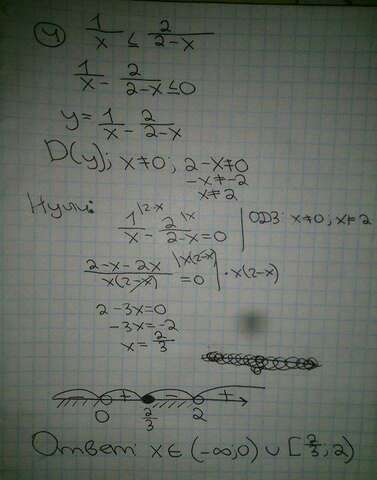 4) 1/x ≤ 2/2-x
1/x - 2/2-x ≤ 0
y = 1/x - 2/2-x
D(y): x≠0; 2-x≠0
-x≠-2
x≠2
Нули:
1|2-x/x - 2|x/2-x = 0 | ОДЗ: x≠0; x≠2
2-x-2x/x(2-x) |x(2-x) = 0 | · x(2-x)
2-3x=0
-3x=-2
x=2/3
- + - +
0 2/3 2
Ответ: x∈(-∞;0)∪[2/3;2)